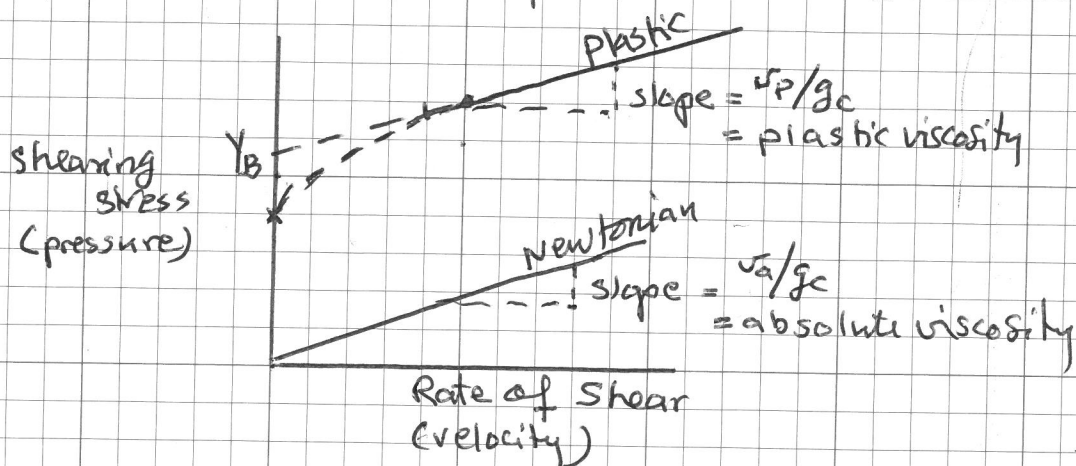 Plastic
slope = √p/gc
= plastic viscosity
YB
shearing
stress
(pressure)
Newtonian
slope = √a/gc
= absolute viscosity
Rate of Shear
(velocity)